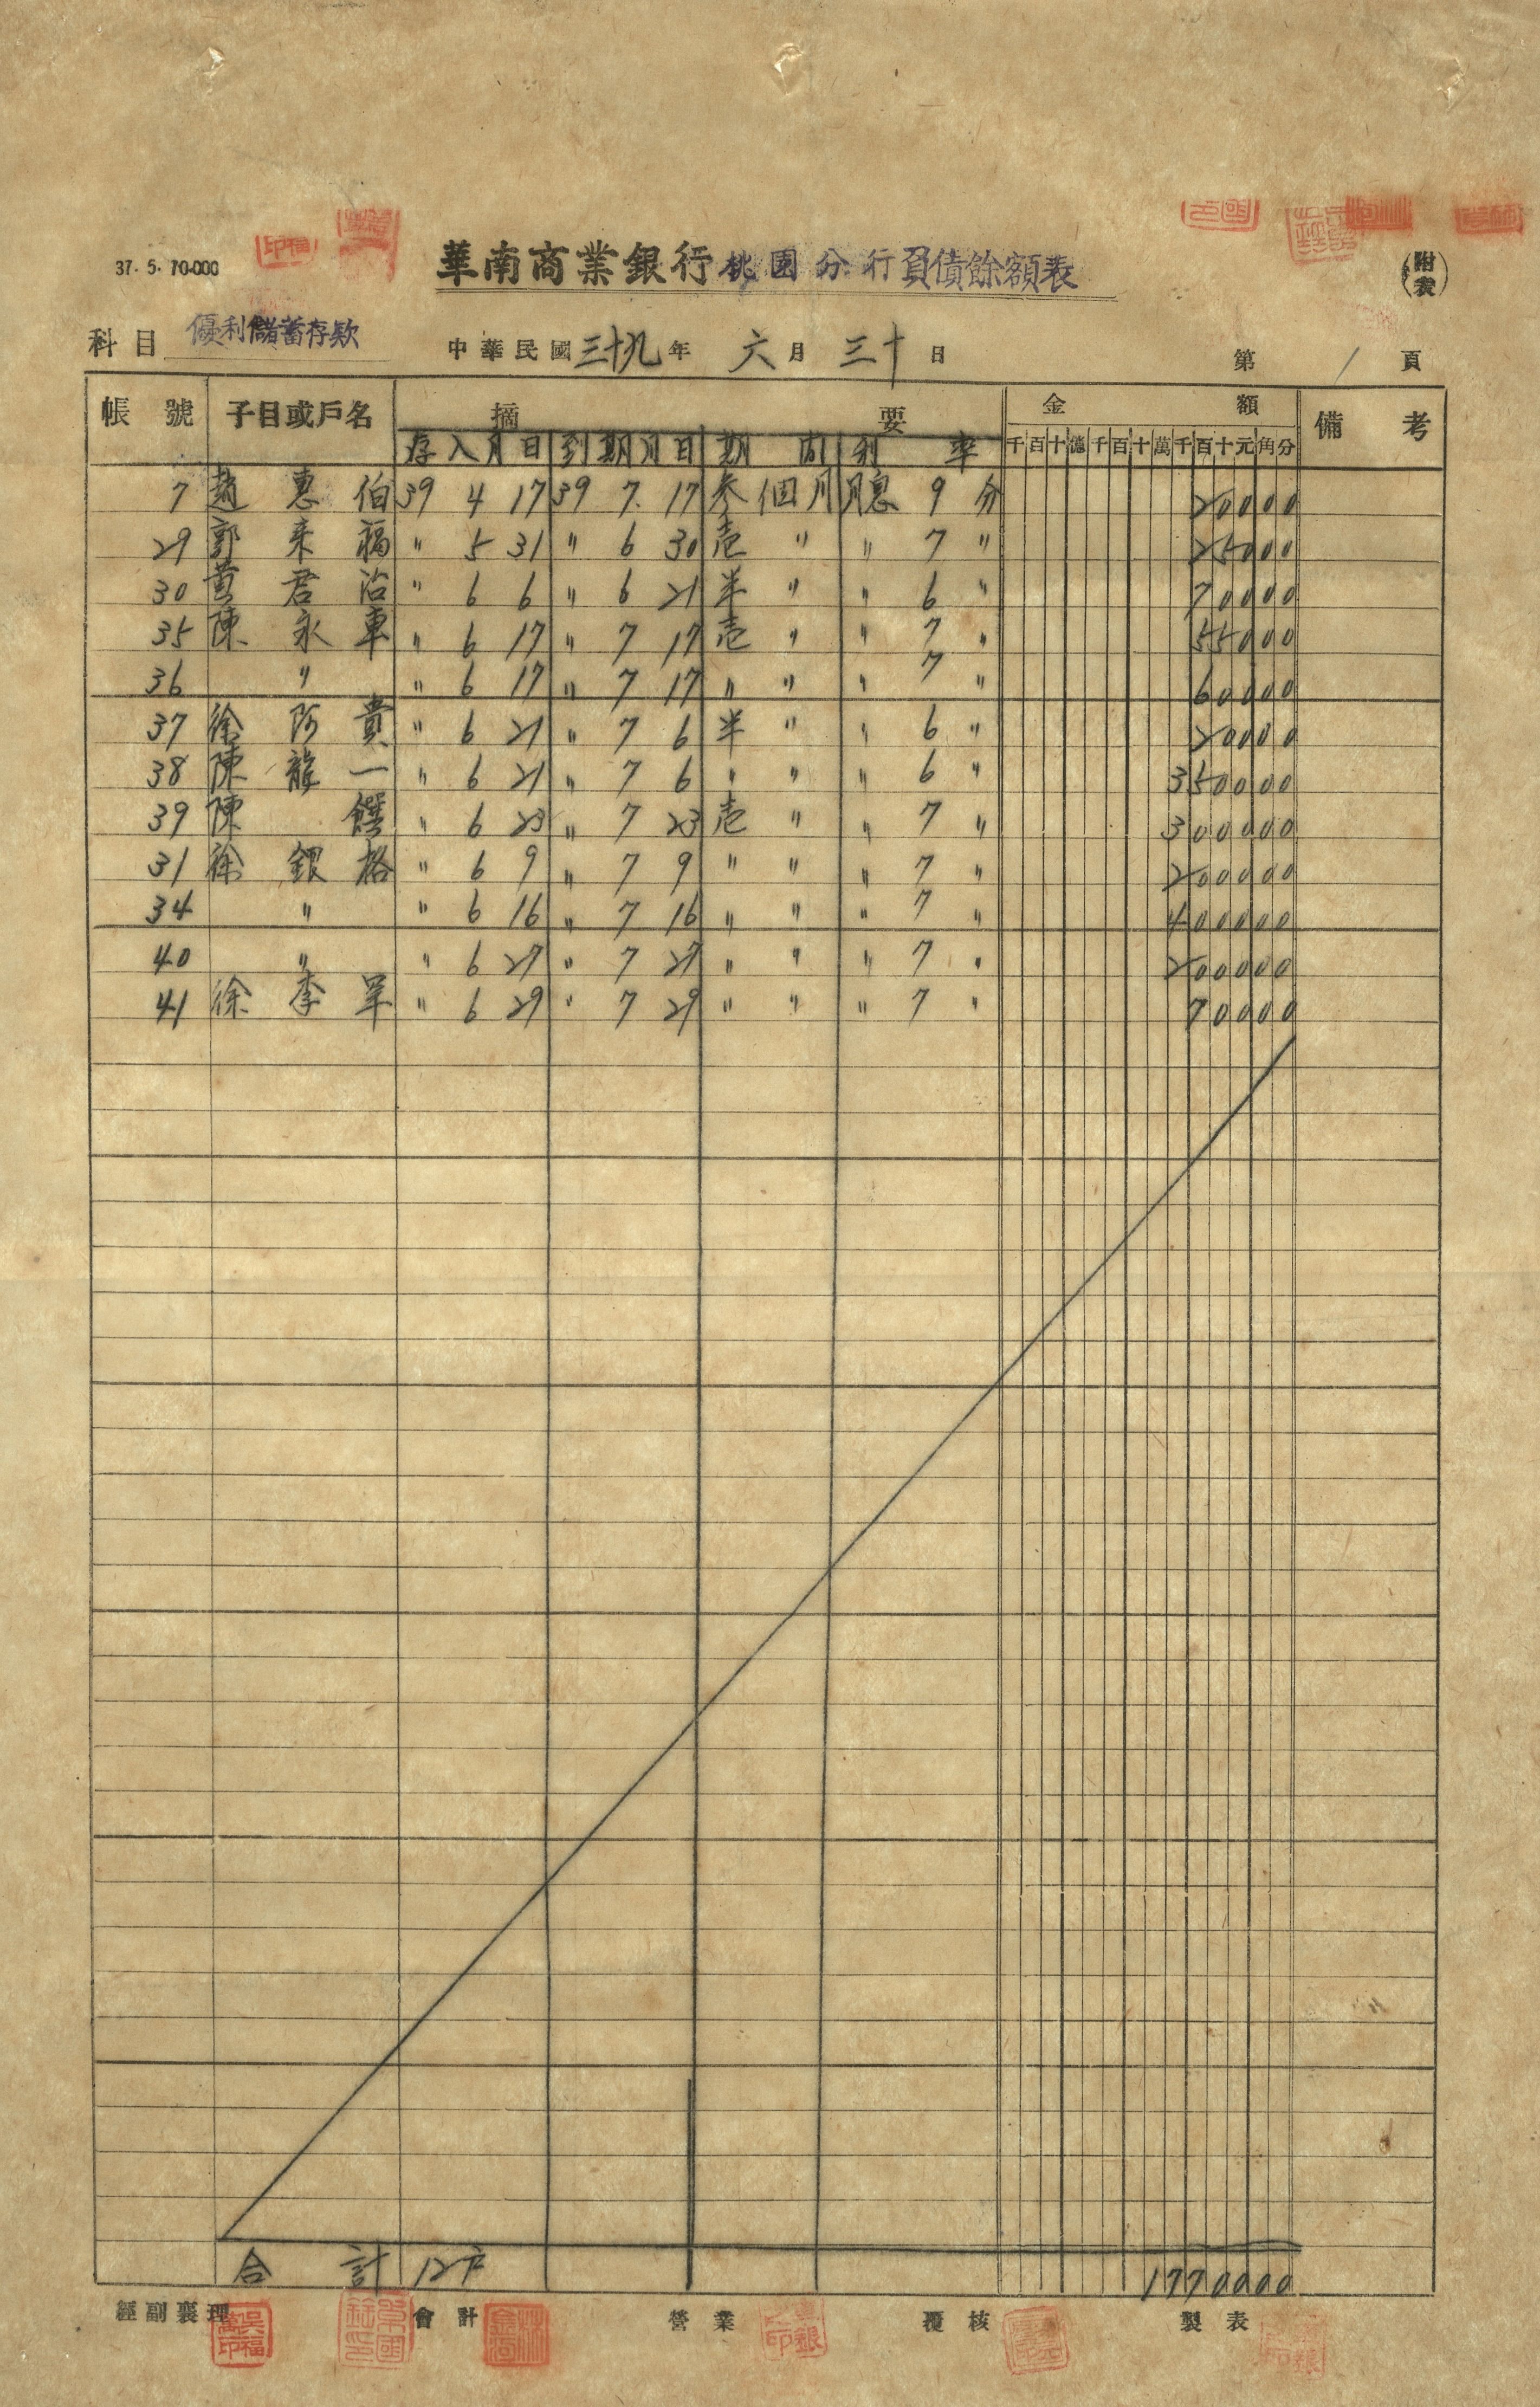 37.5.70-000
華南商業銀行桃園分行負債餘額表
(附表)
科目 優利儲蓄存款 中華民國三十九年 六月 三十日 第 1 頁
帳號 子目或戶名 摘要 金額 備考
存入月日 到期月日 期間 利率 千百十億千百十萬千百十元角分
7 趙惠伯 39 4 17 39 7 17 參個月 月息 9分 20000
29 郭来福 〃 5 31 〃 6 30 壱〃 〃 7〃 25000
30 黄君治 〃 6 6 〃 6 21 半〃 〃 6〃 70000
35 陳永車 〃 6 17 〃 7 17 壱〃 〃 7〃 55000
36 〃 〃 6 17 〃 7 17 〃〃 〃 7〃 60000
37 徐阿貴 〃 6 21 〃 7 6 半〃 〃 6〃 20000
38 陳龍一 〃 6 21 〃 7 6 〃〃 〃 6〃 350000
39 陳 〃 6 23 〃 7 23 壱〃 〃 7〃 300000
31 徐銀格 〃 6 9 〃 7 9 〃〃 〃 7〃 200000
34 〃 〃 6 16 〃 7 16 〃〃 〃 7〃 400000
40 〃 〃 6 27 〃 7 27 〃〃 〃 7〃 200000
41 徐李 〃 6 29 〃 7 29 〃〃 〃 7〃 70000
合計 12户 1770000
經副襄理 會計 營業 覆核 製表